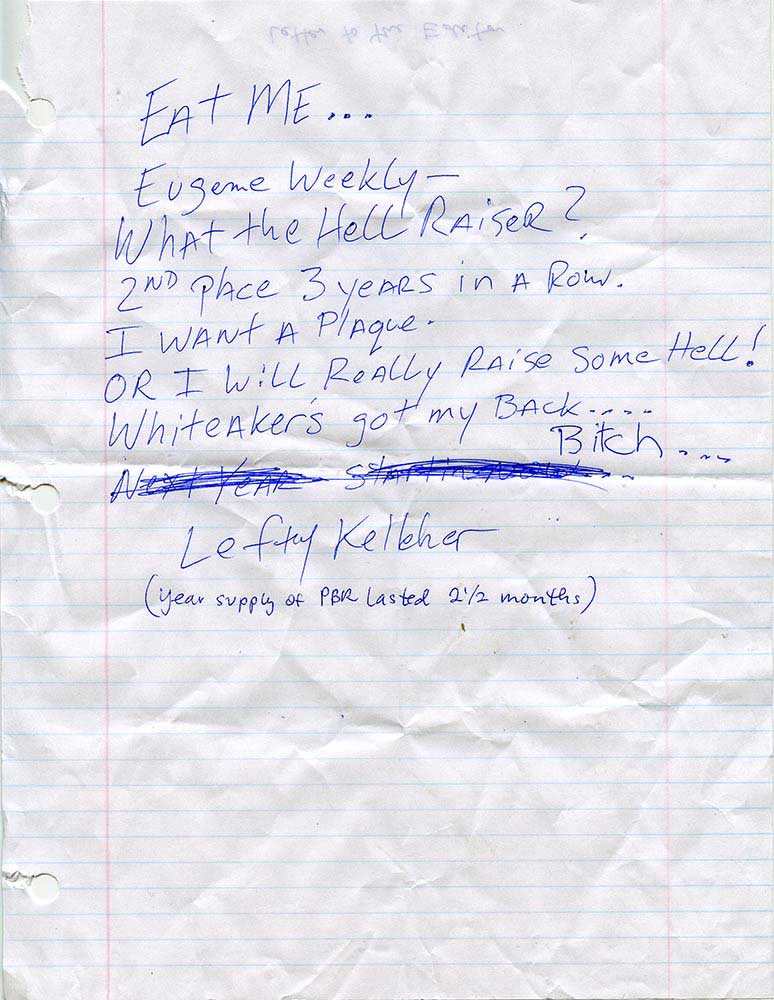 Letter to the Editor
EAt ME...
Eugene Weekly—
WhAt the Hell RAiseR?
2ND plAce 3 yEARS in A Row.
I WANt A PlAque.
OR I Will ReAlly RAise Some Hell!
WhiteAker's got my BAck....
Bitch...
Next YEAR
Lefty Kelleher
(year supply of PBR lasted 2 1/2 months)